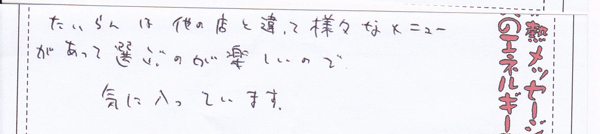 たいらんは他の店と違って様々なメニュー
があって選ぶのが楽しいので
気に入っています。
熱メッセージ
のエネルギー